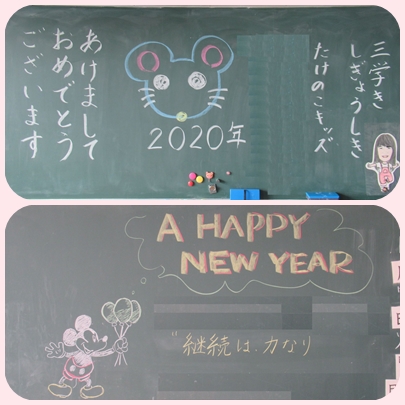 三学き
しぎょうしき
たけのこキッズ
2020年
あけまして
おめでとう
ございます
A HAPPY
NEW YEAR
"継続は、力なり